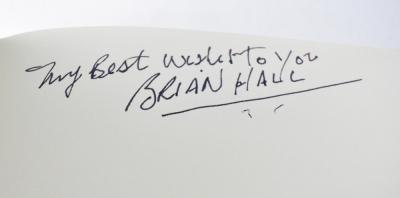 My Best Wishes To You
BRIAN HALL